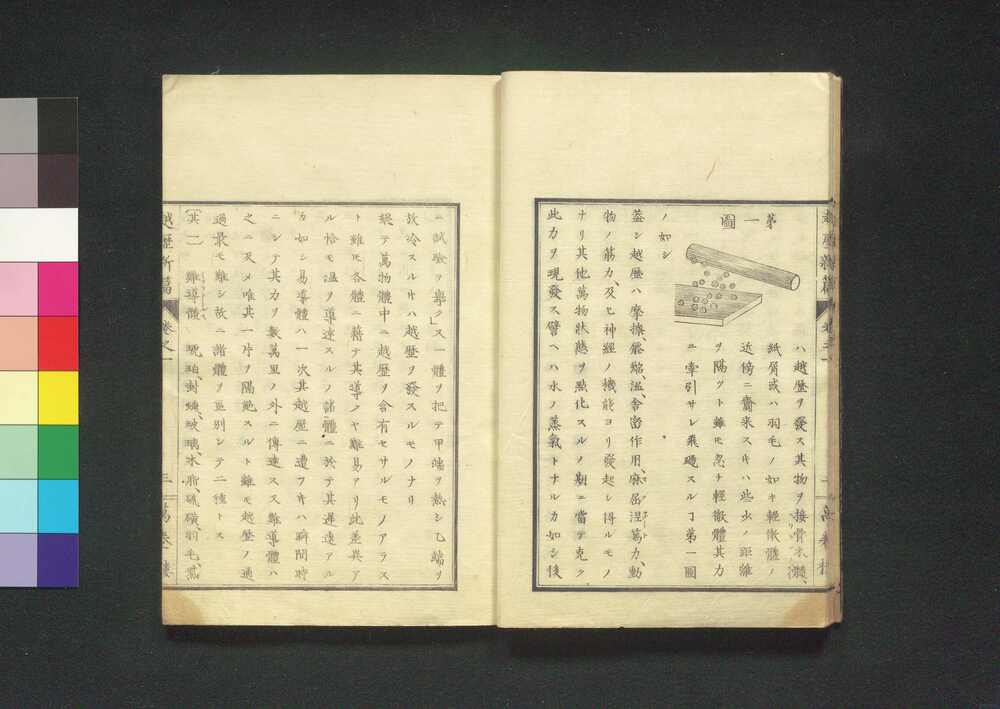 第一圖
ハ越歴ヲ發ス其物ヲ接骨木髓、
紙屑或ハ羽毛ノ如キ輕微體ノ
近傍ニ齎来スキハ些少ノ距離
ヲ隔ツト雖モ忽チ輕微體其力
ニ牽引サレ飛騰スルヿ第一圖
ノ如シ
蓋シ越歴ハ摩擦、壓縮、温、舎密作用、麻屈涅篤力、動
物ノ筋力、及ヒ神經ノ機能ヨリ發起シ得ルモノ
ナリ其他萬物狀態ヲ點化スルノ期ニ當テ克ク
此力ヲ現發ス譬ヘハ水ノ蒸氣トナルカ如シ後
ニ試驗ヲ擧ク」又一體ヲ把テ甲端ヲ熱シ乙端ヲ
放冷スルキハ越歴ヲ發スルモノナリ
總テ萬物體中ニ越歴ヲ含有セサルモノアラス
ト雖モ各體ニ藉テ其導クヤ難易アリ此差異ア
ル恰モ温ヲ導達スルノ諸體ニ於テ其遲速アル
カ如シ易導體ハ一次其越歴ニ遭フキハ瞬間時
ニシテ其力ヲ數萬里ノ外ニ傳達ス又難導體ハ
之ニ反メ唯其一片ヲ隔絶スルト雖モ越歴ノ通
過最モ難シ故ニ諸體ヲ區別シテ二種トス
〔其一〕 難導體 琥珀、樹𦟧、玻璃、木脂、硫磺、羽毛、蒸
越歴新篇 卷之一 三 萬卷樓